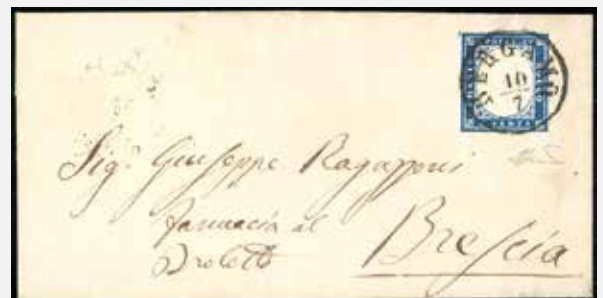 BERGAMO
10
7
Sig. Giuseppe Ragazzoni
farmacia al
Broletto
Brescia